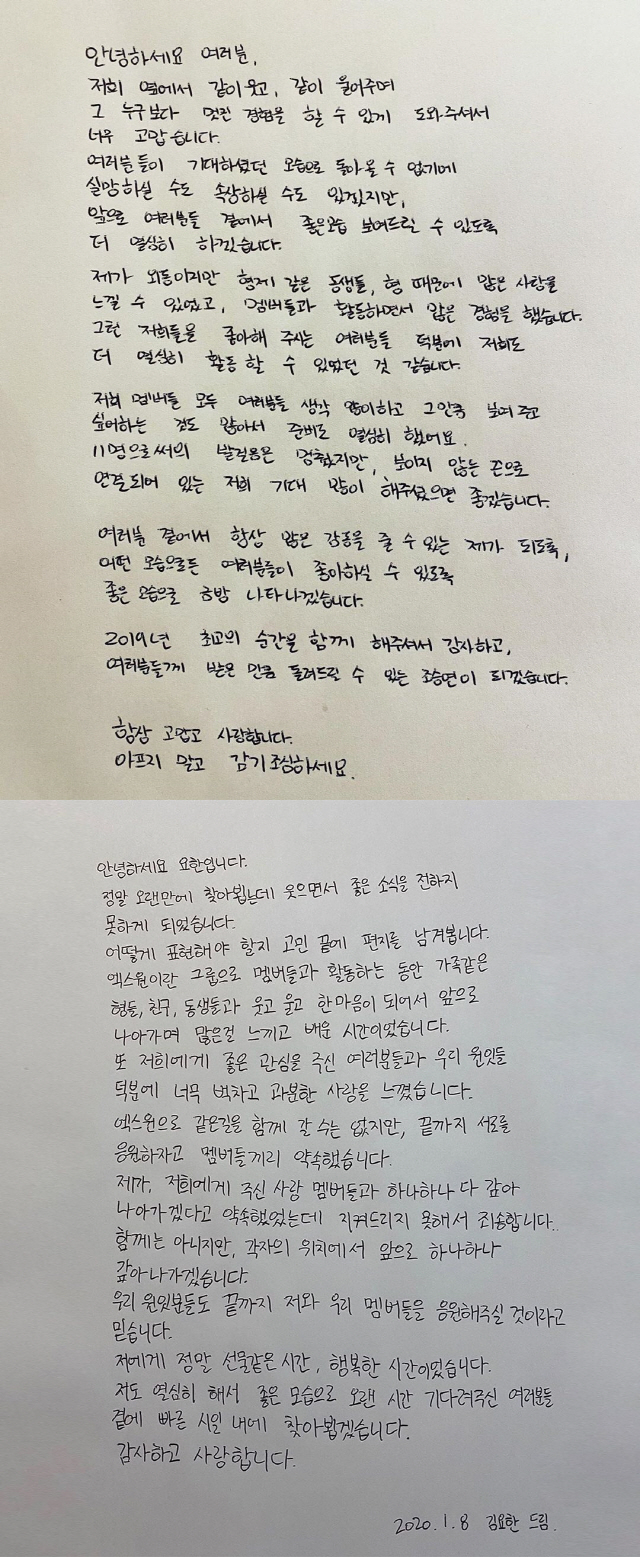 안녕하세요 여러분,
저희 옆에서 같이 웃고, 같이 울어주며
그 누구보다 멋진 경험을 할 수 있게 도와주셔서
너무 고맙습니다.
여러분들이 기대하셨던 모습으로 돌아올 수 없기에
실망하실 수도 속상하실 수도 있겠지만,
앞으로 여러분들 곁에서 좋은모습 보여드릴 수 있도록
더 열심히 하겠습니다.
제가 외동이지만 형제 같은 동생들, 형 때문에 많은 사랑을
느낄 수 있었고, 멤버들과 활동하면서 많은 경험을 했습니다.
그런 저희들을 좋아해 주시는 여러분들 덕분에 저희도
더 열심히 활동할 수 있었던 것 같습니다.
저희 멤버들 모두 여러분들 생각 많이하고 그만큼 보여주고
싶어하는 것도 많아서 준비도 열심히 했어요.
11명으로써의 발걸음은 멈췄지만, 보이지 않는 끈으로
연결되어 있는 저희 기대 많이 해주셨으면 좋겠습니다.
여러분 곁에서 항상 많은 감동을 줄 수 있는 제가 되도록,
어떤 모습으로든 여러분들이 좋아하실 수 있도록
좋은 모습으로 금방 나타나겠습니다.
2019년 최고의 순간을 함께 해주셔서 감사하고,
여러분들께 받은 만큼 돌려드릴 수 있는 조승연이 되겠습니다.
항상 고맙고 사랑합니다.
아프지 말고 감기조심하세요.
안녕하세요 요한입니다.
정말 오랜만에 찾아뵙는데 웃으면서 좋은 소식을 전하지
못하게 되었습니다.
어떻게 표현해야 할지 고민 끝에 편지를 남겨봅니다.
엑스원이란 그룹으로 멤버들과 활동하는 동안 가족같은
형들, 친구, 동생들과 웃고 울고 한마음이 되어서 앞으로
나아가며 많은걸 느끼고 배운 시간이었습니다.
또 저희에게 좋은 관심을 주신 여러분들과 우리 원잇들
덕분에 너무 벅차고 과분한 사랑을 느꼈습니다.
엑스원으로 같은길을 함께 갈 수는 없지만, 끝까지 서로를
응원하자고 멤버들끼리 약속했습니다.
제가, 저희에게 주신 사랑 멤버들과 하나하나 다 갚아
나아가겠다고 약속했었는데 지켜드리지 못해서 죄송합니다.
함께는 아니지만, 각자의 위치에서 앞으로 하나하나
갚아나가겠습니다.
우리 원잇분들도 끝까지 저와 우리 멤버들을 응원해주실 것이라고
믿습니다.
저에게 정말 선물같은 시간, 행복한 시간이었습니다.
저도 열심히 해서 좋은 모습으로 오랜 시간 기다려주신 여러분들
곁에 빠른 시일 내에 찾아뵙겠습니다.
감사하고 사랑합니다.
2020.1.8 김요한 드림.